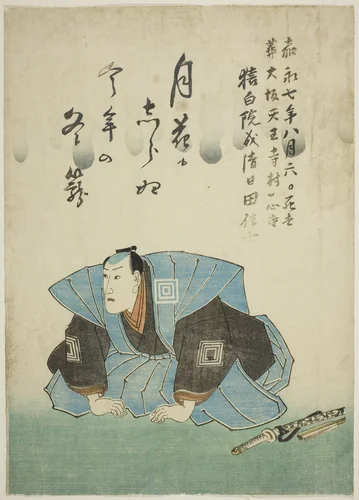 嘉永七年八月六日死去
葬大坂天王寺村一心寺
猿白院成清日田信士
月花も
しらぬ
今年の
冬籠